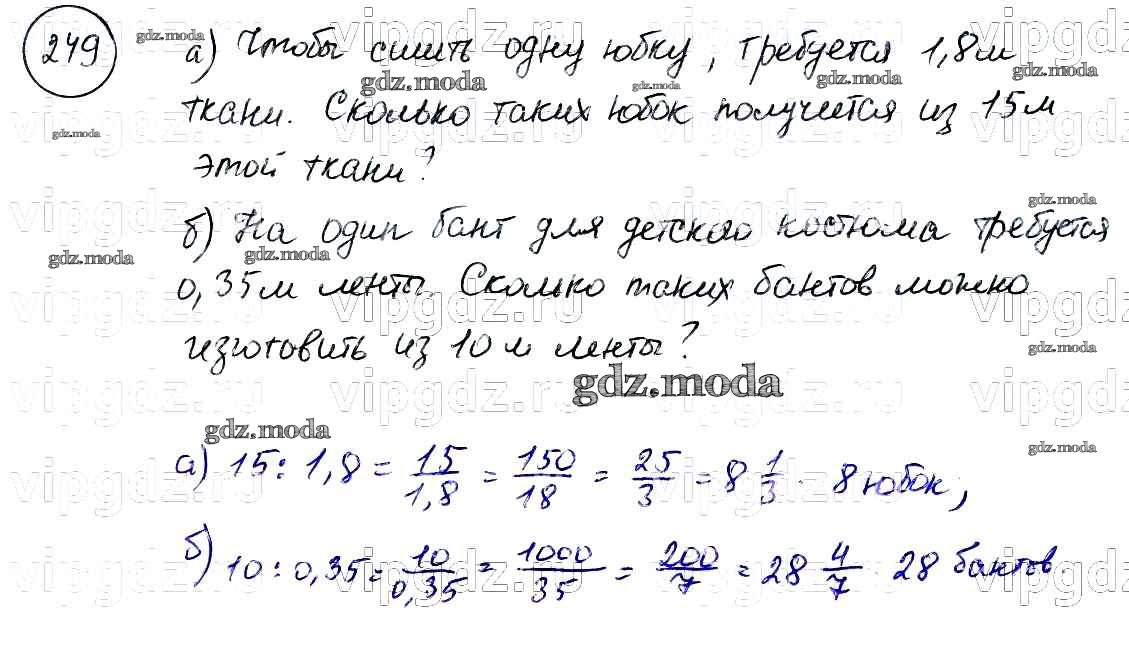 249
а) Чтобы сшить одну юбку, требуется 1,8 м
ткани. Сколько таких юбок получится из 15 м
этой ткани?
б) На один бант для детского костюма требуется
0,35 м ленты. Сколько таких бантов можно
изготовить из 10 м ленты?
а) 15 : 1,8 = 15/1,8 = 150/18 = 25/3 = 8 1/3 . 8 юбок,
б) 10 : 0,35 = 10/0,35 = 1000/35 = 200/7 = 28 4/7 28 бантов
gdz.moda
vipgdz.ru